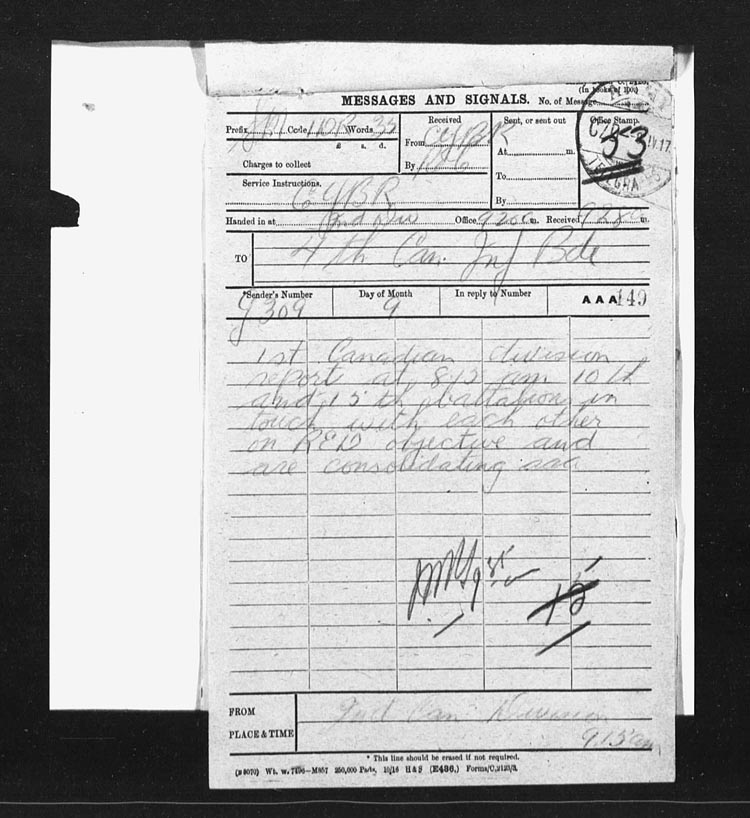 (In books of 100.)
MESSAGES AND SIGNALS. No. of Message
Prefix Code Words 35
£ s. d.
Charges to collect
Received
From CYBR
By
Sent, or sent out
At m.
To
By
Office Stamp.
53
Service Instructions.
CYBR
Handed in at 2nd Div Office 920a m. Received 928a m.
TO 4th Can. Inf Bde
*Sender's Number Day of Month In reply to Number AAA 149
309 9
1st Canadian division
report at 815 am 10th
and 15th battalions in
touch with each other
on RED objective and
are consolidating aaa
FROM 2nd Can Division
PLACE & TIME 915am
* This line should be erased if not required.
(B 3070) Wt. w. 7496—M857 250,000 Pads, 10/16 H & S (E436.) Forms/C,2123/3.